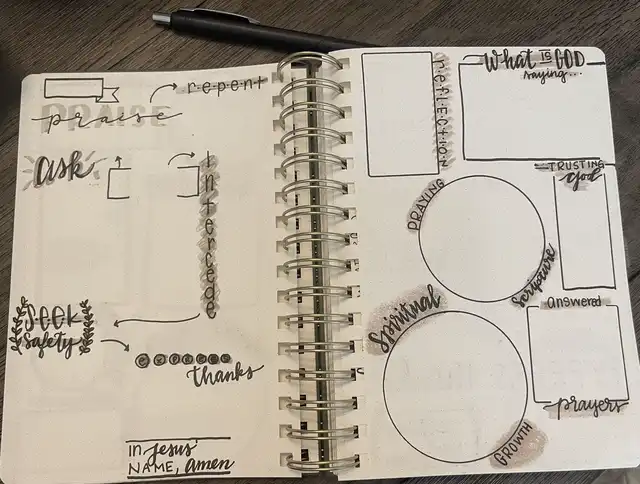 repent
PRAISE
praise
ask
intercede
SEEK
safety
thanks
in jesus'
NAME, amen
reflection
What is GOD
saying...
TRUSTING
god
PRAYING
Scripture
answered
prayers
Spiritual
GROWTH